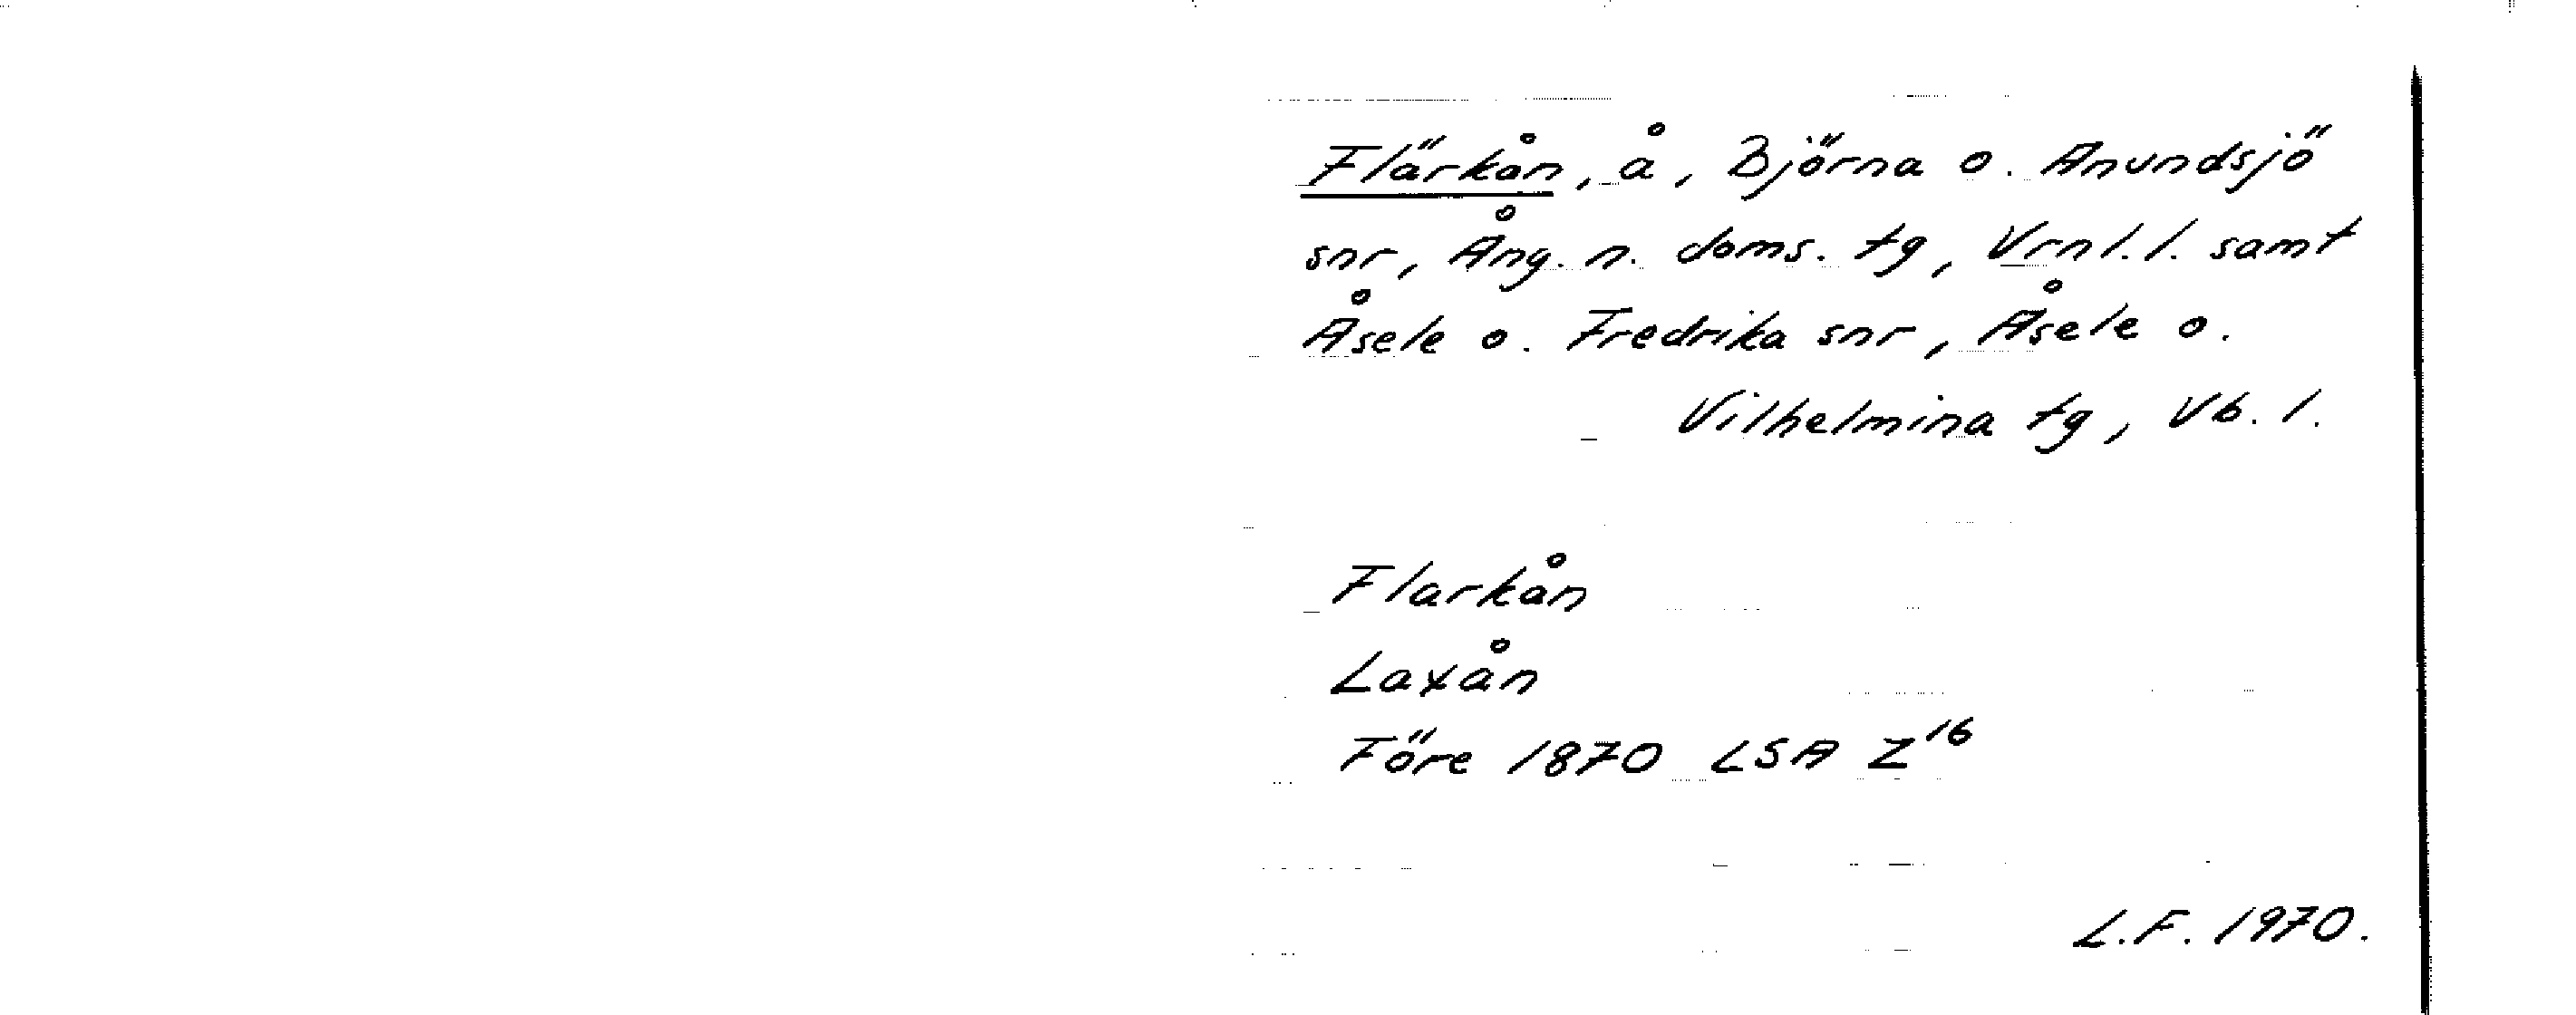 Flärkån, å, Björna o. Anundsjö
snr, Ång. n. doms. tg, Vrnl. l. samt
Åsele o. Fredrika snr, Åsele o.
Vilhelmina tg, Vb. l.
Flarkån
Laxån
Före 1870 LSA Z¹⁶
L.F. 1970.